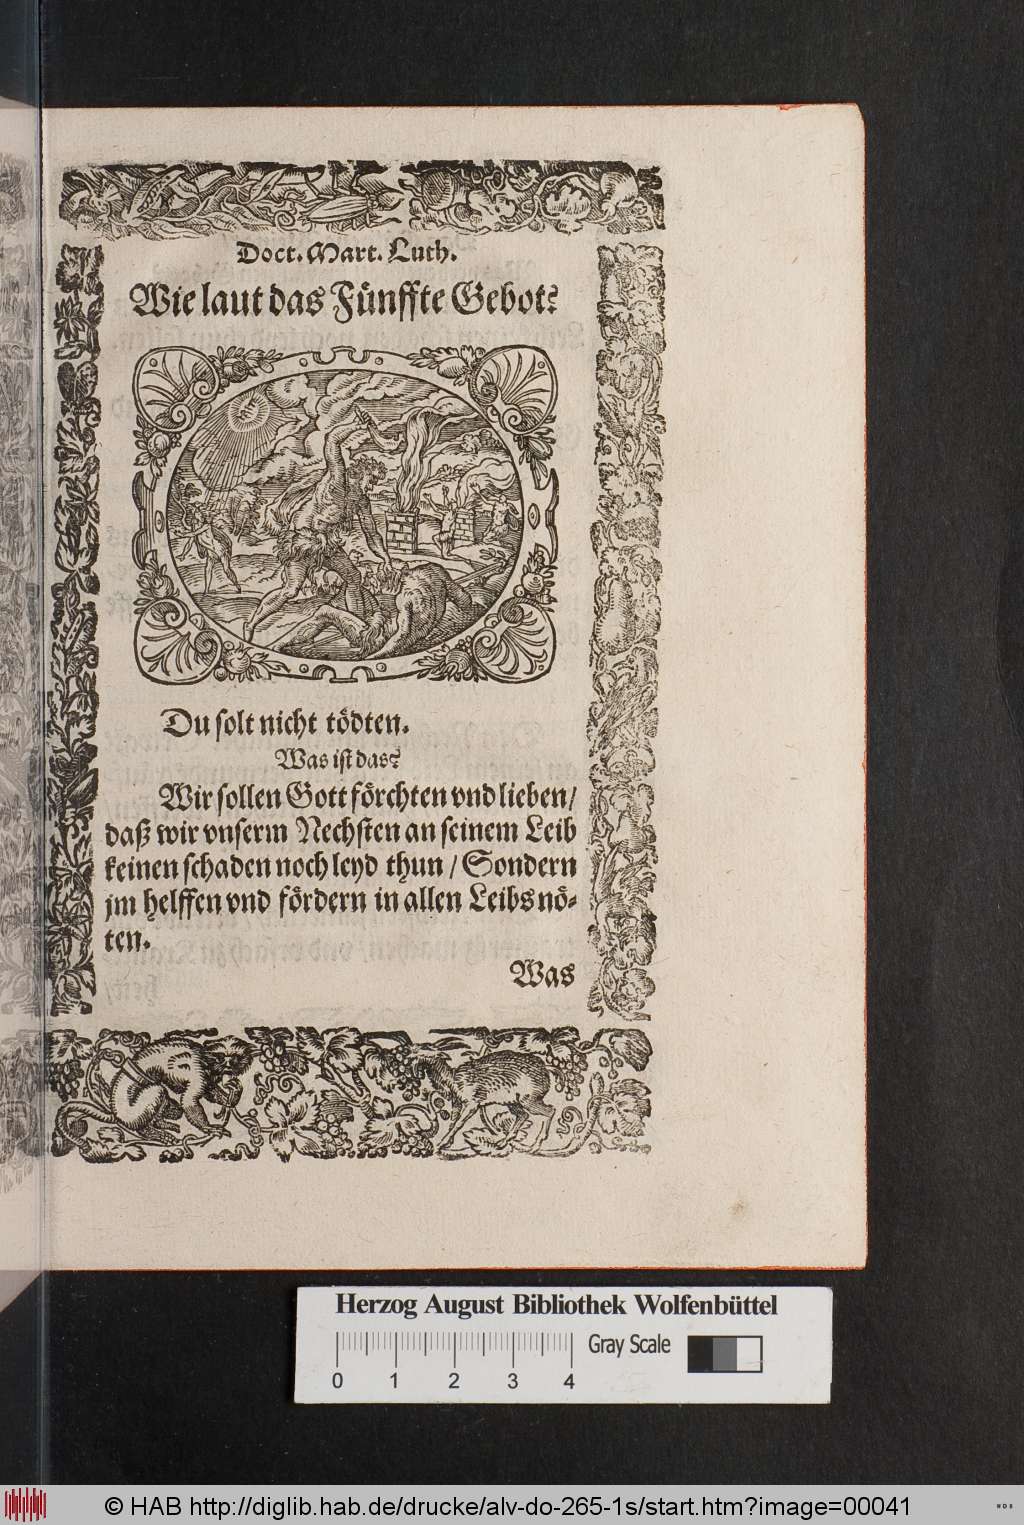 Doct. Mart. Luth.
Wie laut das Fünffte Gebot?
Du solt nicht tödten.
Was ist das?
Wir sollen Gott förchten vnd lieben/
daß wir vnserm Nechsten an seinem Leib
keinen schaden noch leyd thun / Sondern
jm helffen vnd fördern in allen Leibs nö-
ten.
Was
Herzog August Bibliothek Wolfenbüttel
Gray Scale
0 1 2 3 4
© HAB http://diglib.hab.de/drucke/alv-do-265-1s/start.htm?image=00041